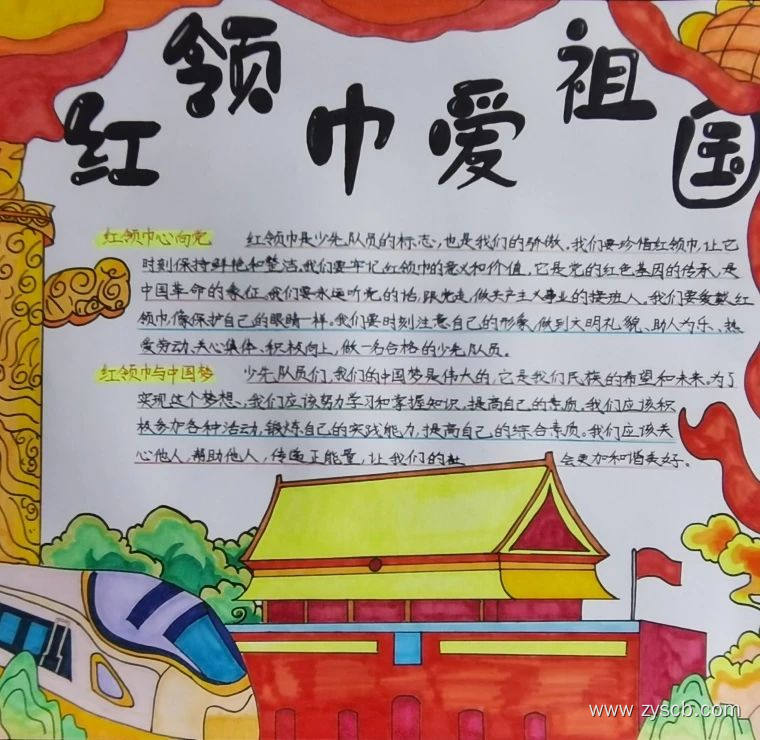 红领巾爱祖国
红领巾心向党 红领巾是少先队员的标志，也是我们的骄傲，我们要珍惜红领巾，让它
时刻保持鲜艳和整洁。我们要牢记红领巾的意义和价值，它是党的红色基因的传承，是
中国革命的象征。我们要永远听党的话，跟党走，做共产主义事业的接班人。我们要爱戴红
领巾，像保护自己的眼睛一样。我们要时刻注意自己的形象，做到文明礼貌、助人为乐、热
爱劳动、关心集体、积极向上，做一名合格的少先队员。
红领巾与中国梦 少先队员们，我们的中国梦是伟大的，它是我们民族的希望和未来。为了
实现这个梦想，我们应该努力学习和掌握知识，提高自己的素质。我们应该积
极参加各种活动，锻炼自己的实践能力，提高自己的综合素质。我们应该关
心他人，帮助他人，传递正能量，让我们的社 会更加和谐美好。
www.zyscb.com